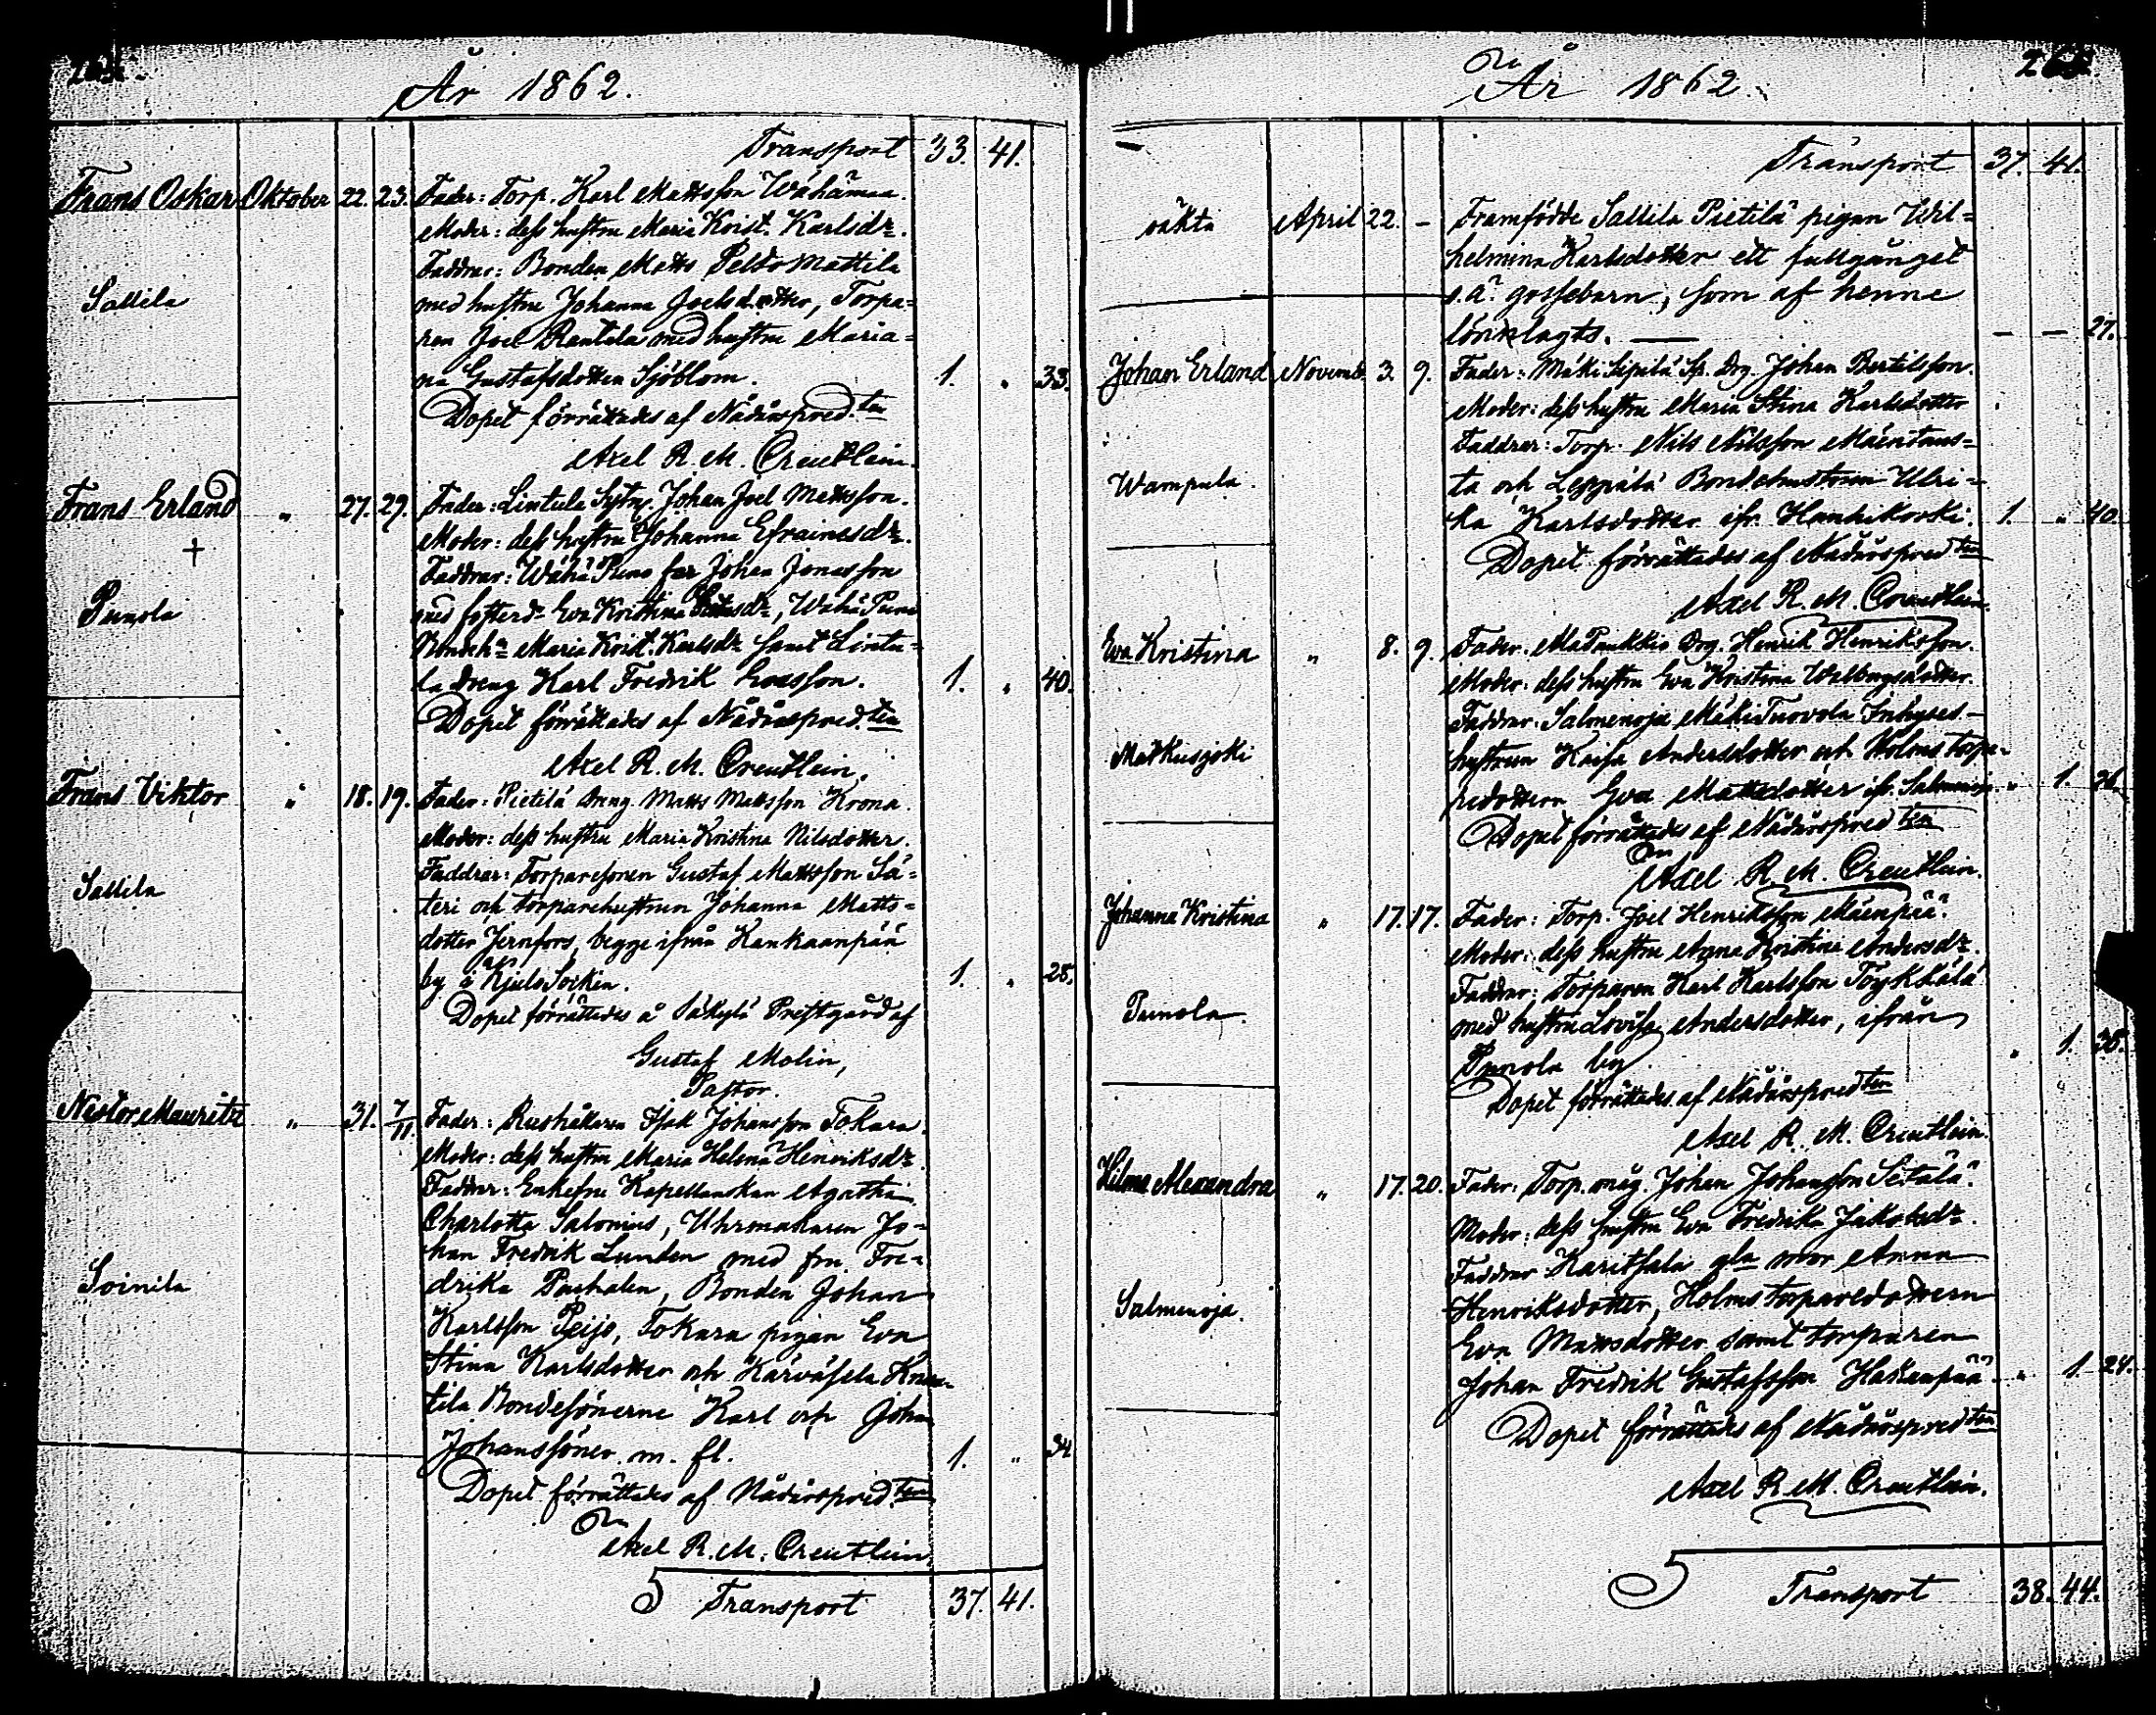 År 1862.
Transport 33. 41.
Frans Oskar Oktober 22. 23. Fader: Torp. Karl Mattsson Wähämaa.
Moder: dess hustru Maria Krist. Karlsdr.
Faddrar: Bonden Matts Peldomattila
Sallila
med hustru Johanna Joelsdotter, Torpa=
ren Joel Rantala med hustru Maria=
na Gustafsdotter Sjöblom. 1. " 33.
Dopet förrättades af Nådårspred.ten
Axel R. M. Creutlein.
Frans Erland " 27. 29. Fader: Lintula Sytn. Johan Joel Mattsson.
Moder: dess hustru Johanna Efraimsdr.
+
Faddrar: Wähä Puno far Johan Jonasson
Punola
med Eva Kristina, Wähä Puno
Bondeh. Maria Krist. Karlsdr samt Lintu=
la dreng Karl Fredrik. 1. " 40.
Dopet förrättades af Nådårspred.ten
Axel R. M. Creutlein.
Frans Viktor " 18. 19. Fader: Pietilä Dreng Matts Mattsson Krona.
Moder: dess hustru Maria Kristina Nilsdotter.
Faddrar: Torparesonen Gustaf Mattsson Sä=
Sallila
teri och torparehustrun Johanna Matts=
dotter Jernfors, begge ifrån Kankaanpää
by i Kjulo Socken. 1. " 28.
Dopet förrättades å Säkylä Prestgård af
Gustaf Molin,
Pastor.
Nestor Mauritz " 31. 7/11. Fader: Rusthållaren Isak Johansson Tokara.
Moder: dess hustru Maria Helena Henriksdr.
Faddrar: Enkefru Kapellanskan Agatha
Charlotta Salonius, Uhrmakaren Jo=
han Fredrik Lunden med fru Fre=
Soinila
drika, Bonden Johan
Karlsson Peijo, Tokara pigan Eva
Stina Karlsdotter och
tila Bondesönerne Karl och Johan
Johanssöner m. fl. 1. " 34
Dopet förrättades af Nådårspred.ten
Axel R. M. Creutlein
Transport 37. 41.
År 1862.
Transport 37. 41.
oäkta April 22. – Framfödde Sallila Pietilä pigan Wil=
helmina Karlsdotter ett fullgånget
o. ä. gossebarn, som af henne
lönnlagts. — — — 27.
Johan Erland Novemb. 3. 9. Fader: Mäki Sipilä Sp. Drg. Johan Bertilsson.
Moder: dess hustru Maria Stina Karlsdotter
Faddrar: Torp. Nils Nilsson Mäentaus=
Wampula.
ta och Leppälä Bondehustrun Ulri=
ka Karlsdotter ifr. Hanhikoski. 1. " 40.
Dopet förrättades af Nådårspredten
Axel R. M. Creutlein.
Eva Kristina " 8. 9. Fader: Drg. Henrik Henriksson.
Moder: dess hustru Eva Kristina
Faddrar: Salmenoja Mäki Tuovola Inhyses=
Matkusjoki
hustrun Kaisa Andersdotter och Holms torpa=
redottern Eva Mattsdotter ifr. Salmenoja. " 1. 26.
Dopet förrättades af Nådårspredten
Axel R. M. Creutlein.
Johanna Kristina " 17. 17. Fader: Torp. Joel Henriksson Mäenpää.
Moder: dess hustru Anna Kristina Andersdr.
Faddrar: Torparen Karl Karlsson Töykkälä
Punola.
med hustru Lovisa Andersdotter, ifrån
Punola by. " 1. 38.
Dopet förrättades af Nådårspredten
Axel R. M. Creutlein.
Hilma Alexandra " 17. 20. Fader: Torp. måg. Johan Johansson Seitälä.
Moder: dess hustru Eva Fredrika Jakobsdr.
Faddrar Karitsala gla mor Anna
Salmenoja.
Henriksdotter, Holms torparedottern
Eva Mattsdotter samt torparen
Johan Fredrik Gustafsson Hakanpää. " 1. 24.
Dopet förrättades af Nådårspredten
Axel R. M. Creutlein.
Transport 38. 44.